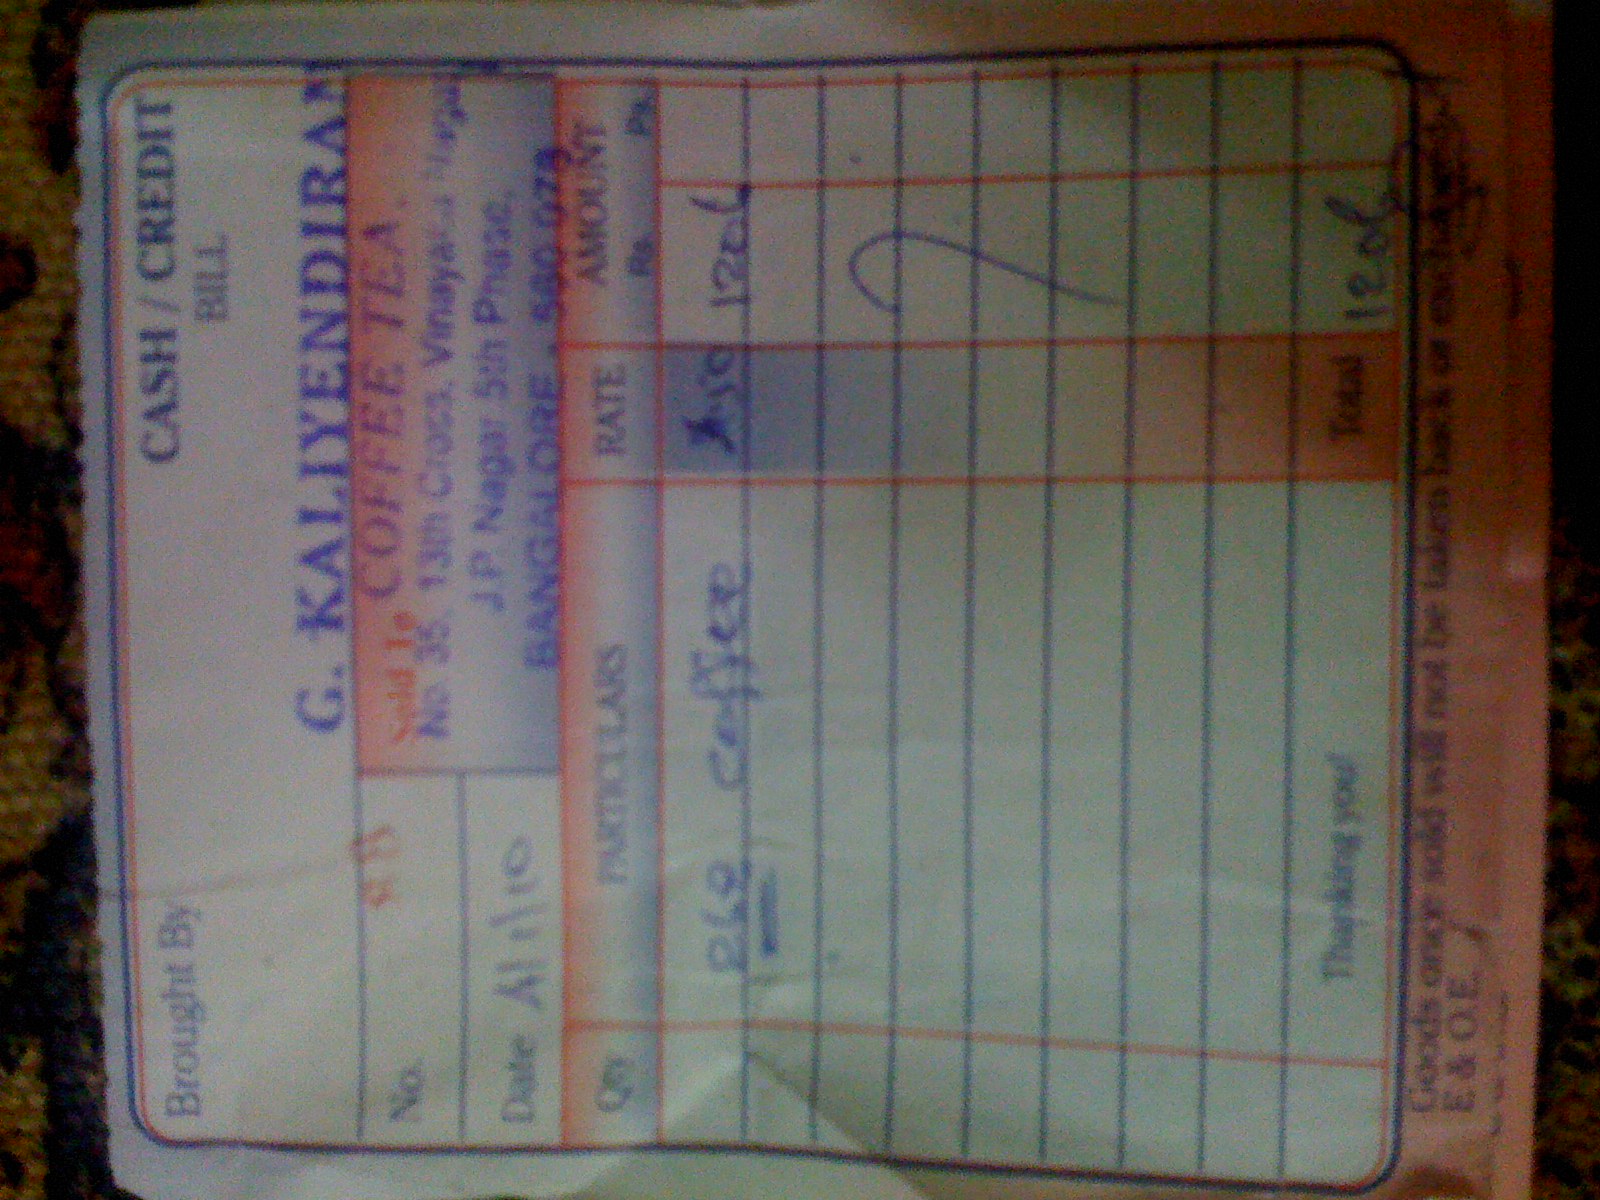 Brought By
CASH / CREDIT
BILL
G. KALIYENDIRAN
No.
Sold To
COFFEE TEA.
No. 35, 13th Cross, Vinayaka Nagar
J.P. Nagar 5th Phase,
Date 1/10
BANGALORE - 560 078
Qty PARTICULARS RATE AMOUNT
Rs. Ps.
268 coffee 4.50 1206
Thanking you! Total 1206
Goods once sold will not be taken back or exchanged
E & O.E.